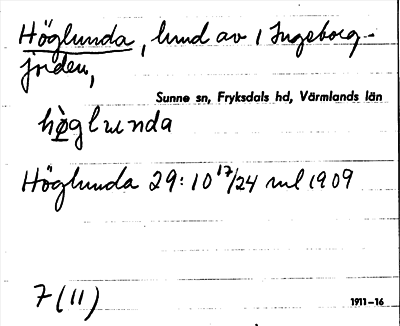 Höglunda, lund av 1 Ingeborg-
jorden,
Sunne sn, Fryksdals hd, Värmlands län
hø̀glunda
Höglunda 29:10 17/24 mtl 1909
7 (11)
1911-16